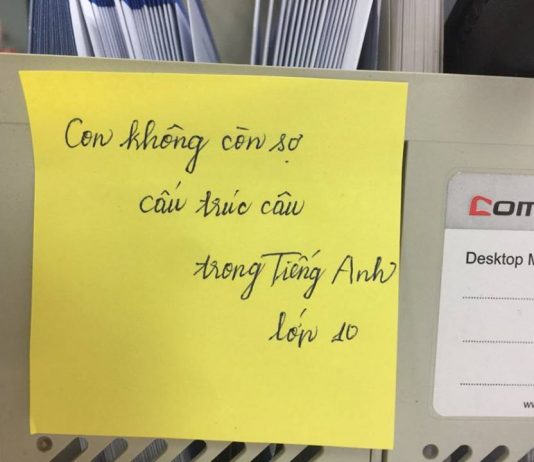 Con không còn sợ
cấu trúc câu
trong Tiếng Anh
lớp 10
COM
Desktop M